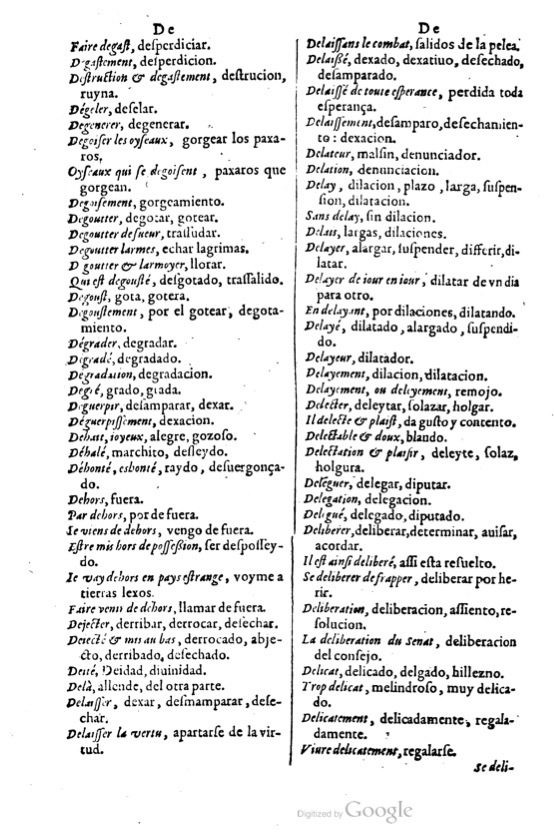 De
Faire degast, desperdiciar.
Degastement, desperdicion.
Destruction & degastement, destrucion,
ruyna.
Dégeler, deselar.
Degenerer, degenerar.
Degoiser les oyseaux, gorgear los paxa-
ros.
Oyseaux qui se degoisent, paxaros que
gorgean.
Degoisement, gorgeamiento.
Degoutter, degotar, gotear.
Degoutter de sueur, trassudar.
Degoutter larmes, echar lagrimas.
D goutter & larmoyer, llorar.
Qui est degousté, desgotado, trassalido.
Degoust, gota, gotera.
Degoustement, por el gotear, degota-
miento.
Dégrader, degradar.
Dégradé, degradado.
Degradation, degradacion.
Degré, grado, grada.
Deguerpir, desamparar, dexar.
Déguerpissement, dexacion.
Dehait, ioyeux, alegre, gozoso.
Déhalé, marchito, desleydo.
Déhonté, eshonté, raydo, desuergonça-
do.
Dehors, fuera.
Par dehors, por de fuera.
Ie viens de dehors, vengo de fuera.
Estre mis hors de possession, ser desposey-
do.
Ie vay dehors en pays estrange, voyme a
tierras lexos.
Faire venir de dehors, llamar de fuera.
Dejecter, derribar, derrocar, desechar.
Deiecté & mis au bas, derrocado, abje-
cto, derribado, desechado.
Deité, Deidad, diuinidad.
Delà, allende, del otra parte.
Delaisser, dexar, desmamparar, dese-
char.
Delaisser la vertu, apartarse de la vir-
tud.
De
Delaissans le combat, salidos de la pelea.
Delaissé, dexado, dexatiuo, desechado,
desamparado.
Delaissé de toute esperance, perdida toda
esperança.
Delaissement, desamparo, desechamien-
to: dexacion.
Delateur, malsin, denunciador.
Delation, denunciacion.
Delay, dilacion, plazo, larga, suspen-
sion, dilatacion.
Sans delay, sin dilacion.
Delais, largas, dilaciones.
Delayer, alargar, suspender, differir, di-
latar.
Delayer de iour en iour, dilatar de vn dia
para otro.
En delayant, por dilaciones, dilatando.
Delayé, dilatado, alargado, suspendi-
do.
Delayeur, dilatador.
Delayement, dilacion, dilatacion.
Delayement, ou deliyement, remojo.
Delecter, deleytar, solazar, holgar.
Il delecte & plaist, da gusto y contento.
Delectable & doux, blando.
Delectation & plaisir, deleyte, solaz,
holgura.
Deleguer, delegar, diputar.
Delegation, delegacion.
Delegué, delegado, diputado.
Deliberer, deliberar, determinar, auisar,
acordar.
Il est ainsi deliberé, assi esta resuelto.
Se deliberer de frapper, deliberar por he-
rir.
Deliberation, deliberacion, assiento, re-
solucion.
La deliberation du Senat, deliberacion
del consejo.
Delicat, delicado, delgado, hillezno.
Trop delicat, melindroso, muy delica-
do.
Delicatement, delicadamente, regala-
damente.
Viure delicatement, regalarse.
Se deli-
Digitized by Google